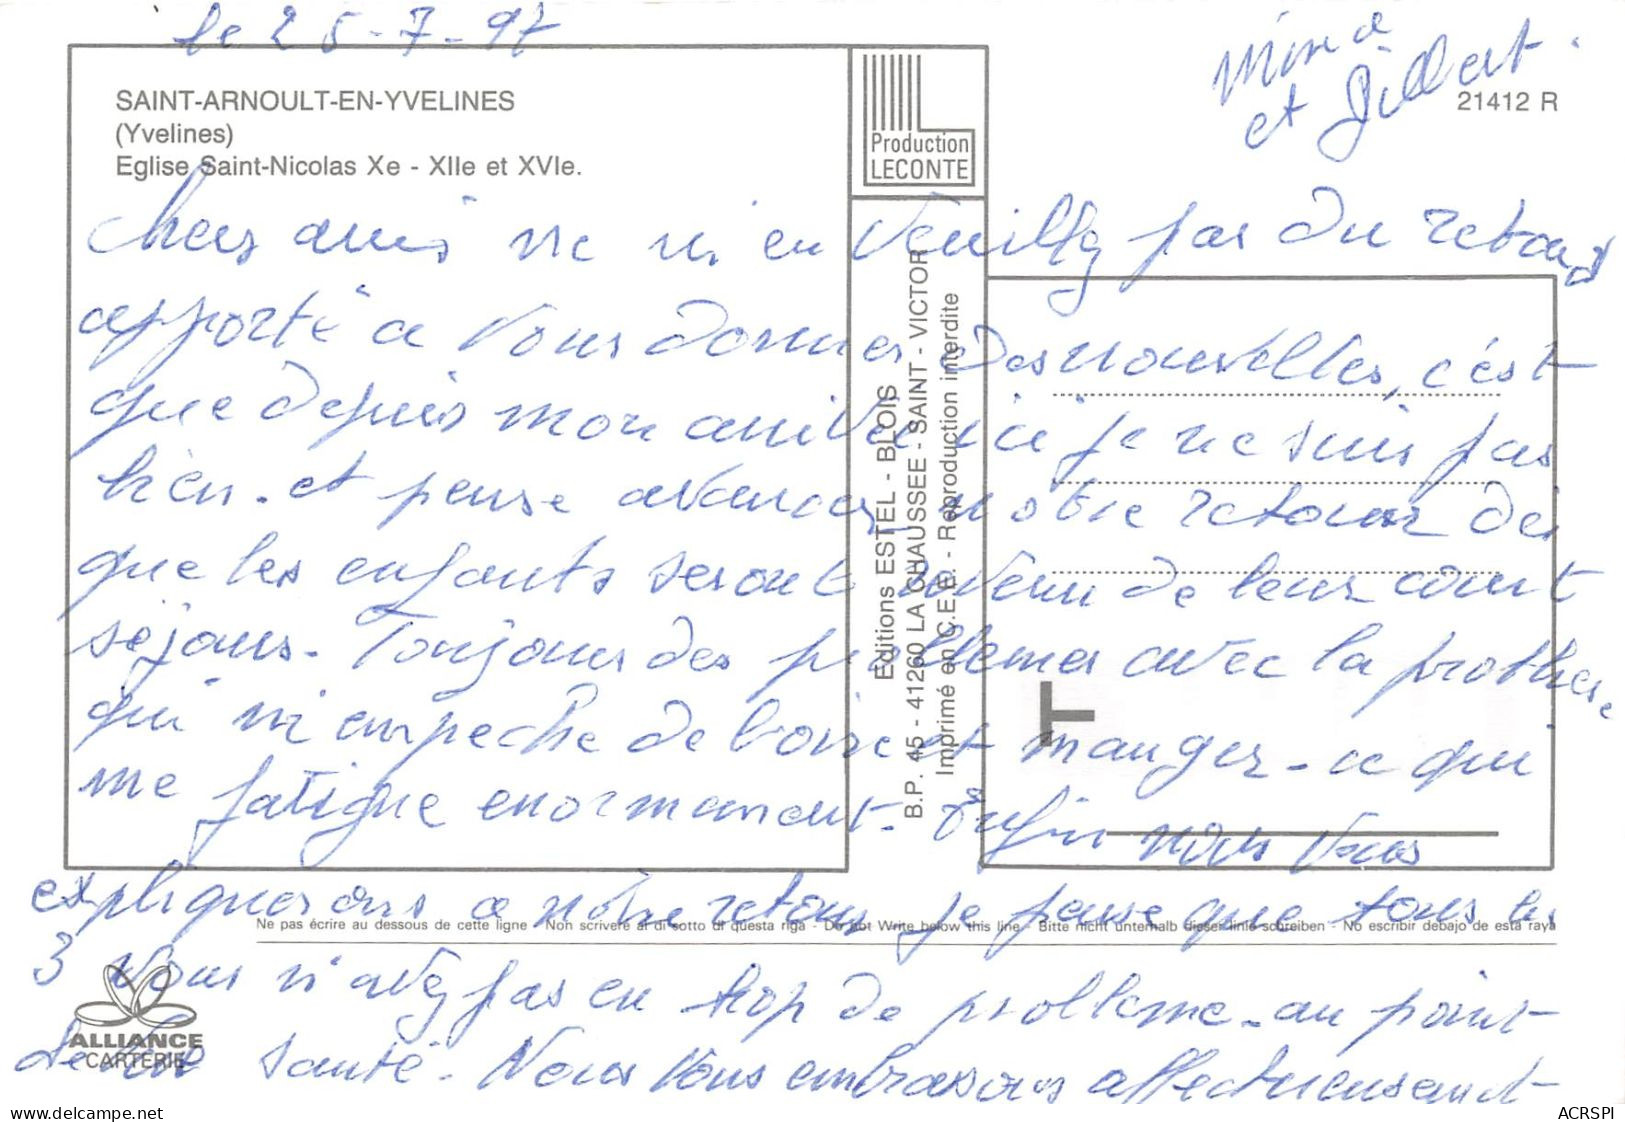 le 25-7-97
Mine a
et Gilbert.
SAINT-ARNOULT-EN-YVELINES
(Yvelines)
Eglise Saint-Nicolas Xe - XIIe et XVIe.
Production
LECONTE
21412 R
Chers amis ne m'en veuillez pas du retard
apporté a vous donner des nouvelles, c'est
que depuis mon arrivée ici je ne suis pas
bien. et pense avancer notre retour dès
que les enfants seront revenu de leur court
séjour. Toujours des problemes avec la prothese
qui m'empeche de boire et manger - ce qui
me fatigue enormement. Enfin nous vous
expliquerons a nôtre retour je pense que tous les
3 vous n'avez pas eu trop de probleme - au point
de vue santé - Nous vous embrassons affectueusement
Editions ESTEL - BLOIS
B.P. 45 - 41260 LA CHAUSSEE - SAINT - VICTOR
Imprimé en C.E.E. - Reproduction interdite
T
Ne pas écrire au dessous de cette ligne - Non scrivere al di sotto di questa riga - Do not Write below this line - Bitte nicht unterhalb dieser linie schreiben - No escribir debajo de esta raya
ALLIANCE
CARTERIE
www.delcampe.net
ACRSPI